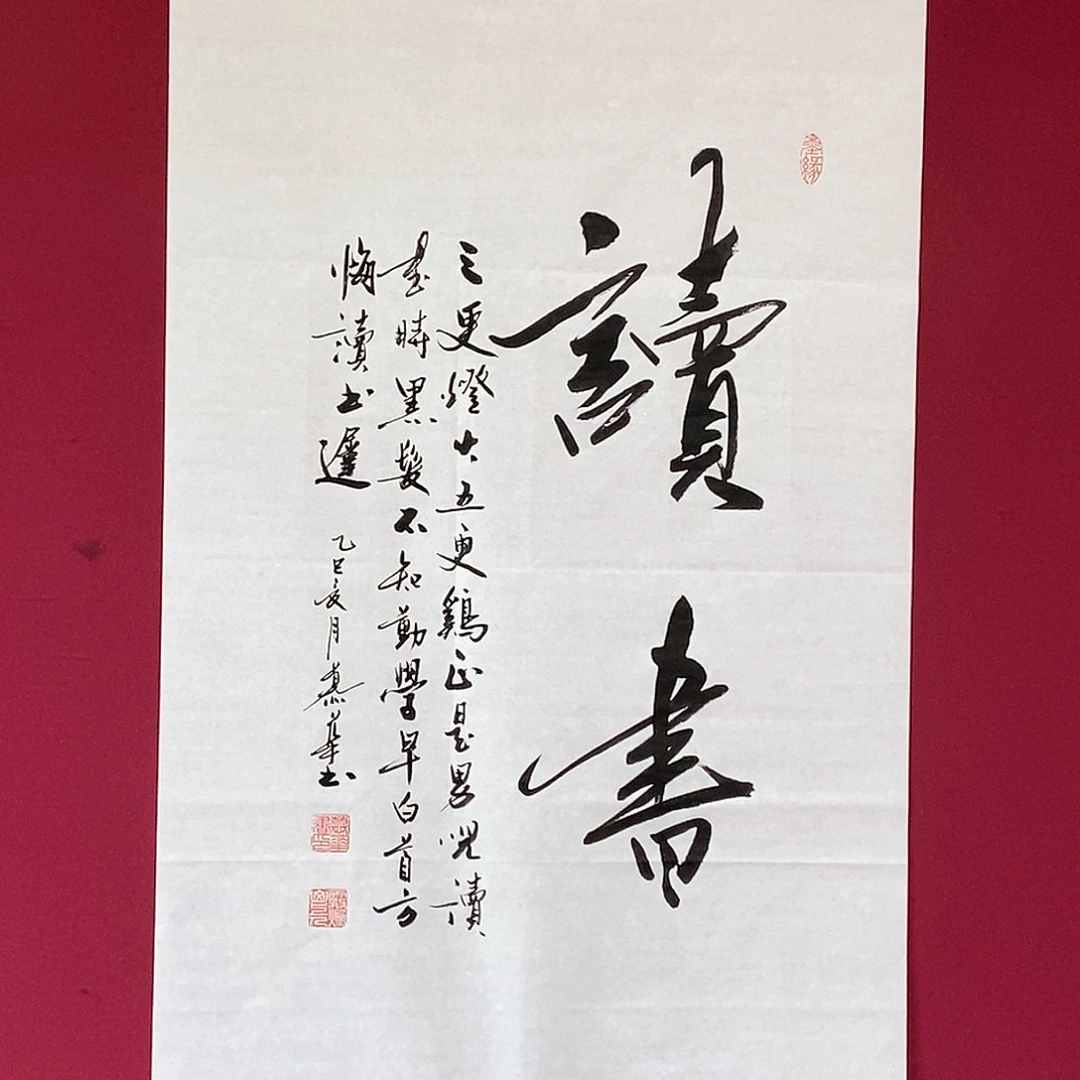 墨缘
讀書
三更燈火五更鷄正是男兒讀
書時黑髮不知勤學早白首方
悔讀书遲
乙巳亥月慕華书